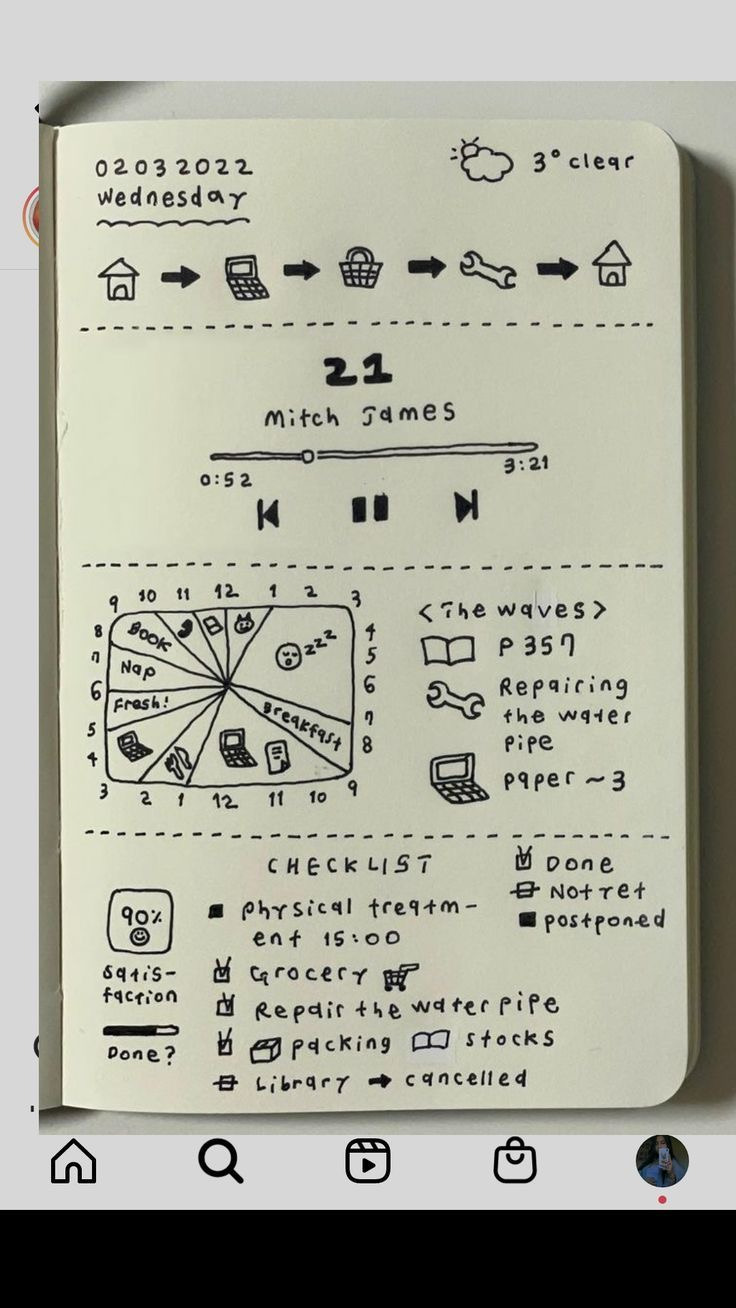 02032022
Wednesday
3° clear
21
Mitch James
0:52
3:21
9 10 11 12 1 2 3
8 Book zzz 4
7 Nap 5
6 Fresh! 6
5 Breakfast 7
4 8
3 2 1 12 11 10 9
<The waves>
P 357
Repairing
the water
pipe
paper ~3
CHECKLIST
Done
Not ret
postponed
90%
satis-
faction
Done?
physical treatm-
ent 15:00
Grocery
Repair the water pipe
packing stocks
Library → cancelled